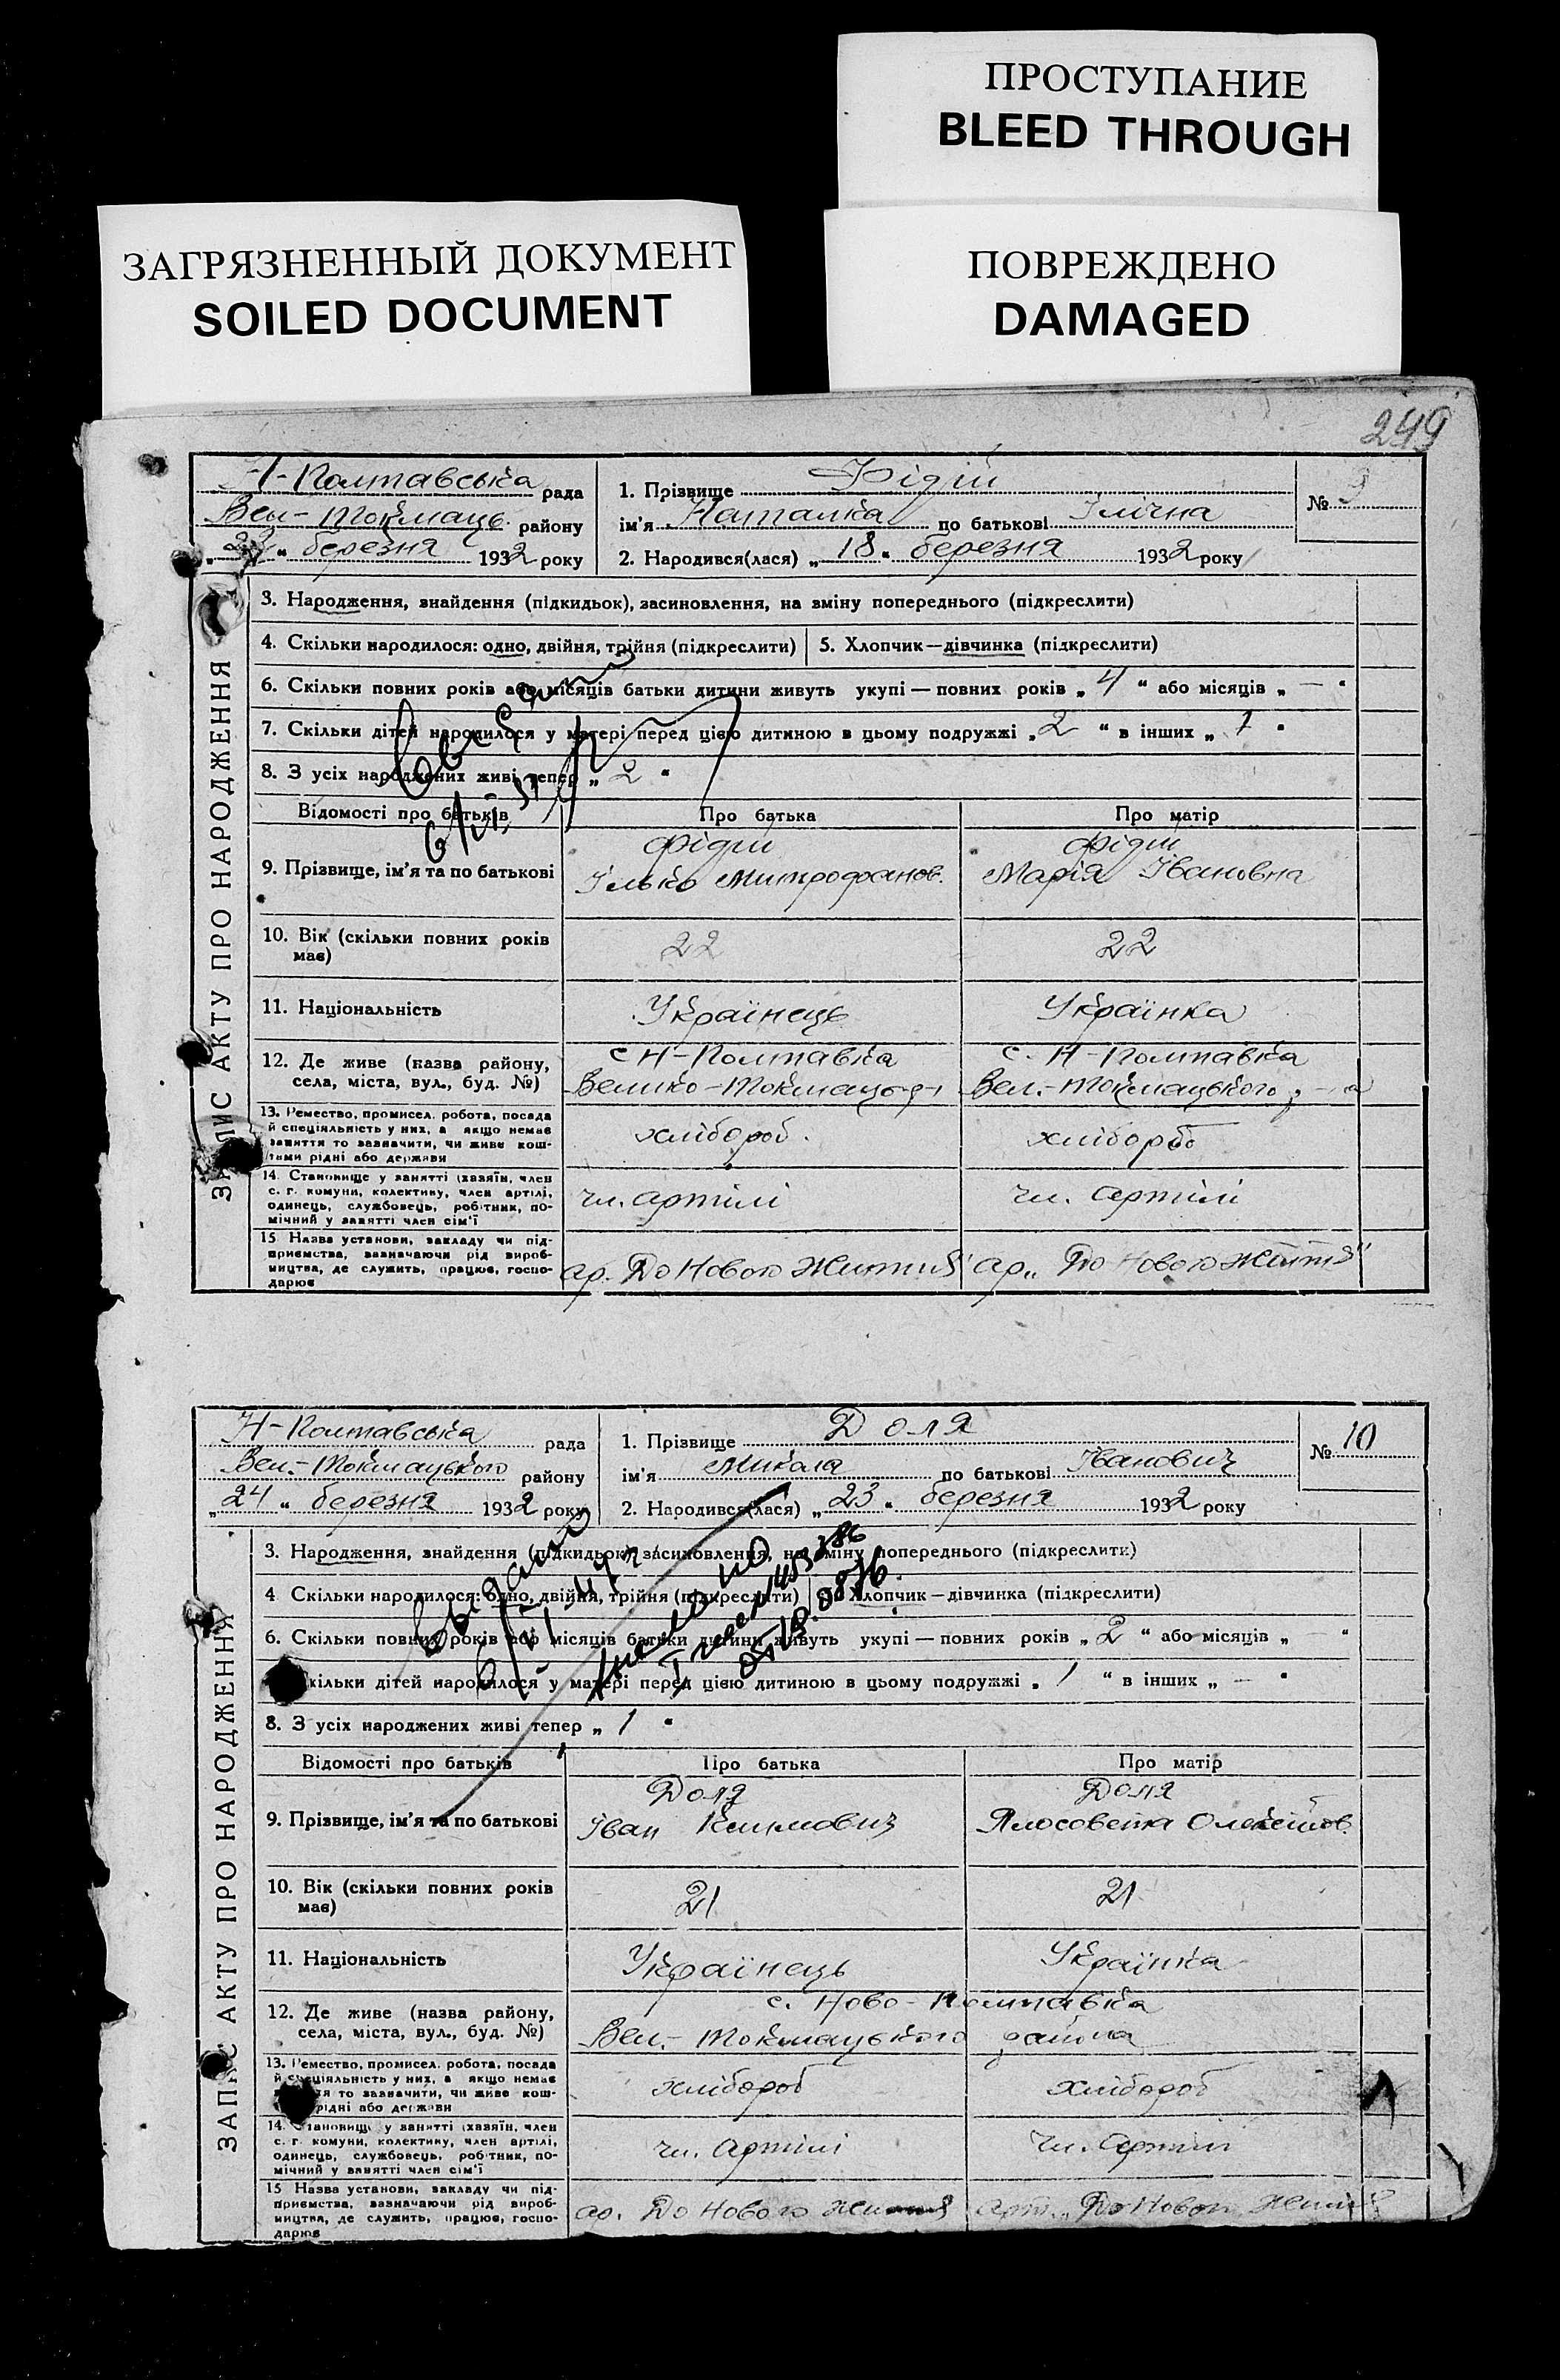 ПРОСТУПАНИЕ
BLEED THROUGH
ЗАГРЯЗНЕННЫЙ ДОКУМЕНТ
SOILED DOCUMENT
ПОВРЕЖДЕНО
DAMAGED
249
Н-Полтавська рада
Вел-Токмаць. району
березня 1932 року
1. Прізвище Фідій
ім'я Наталка по батькові Ілічна
2. Народився(лася) „18" березня 1932 року
№ 9
ЗАПИС АКТУ ПРО НАРОДЖЕННЯ
3. Народження, знайдення (підкидьок), засиновлення, на зміну попереднього (підкреслити)
4. Скільки народилося: одно, двійня, трійня (підкреслити) 5. Хлопчик—дівчинка (підкреслити)
6. Скільки повних років або місяців батьки дитини живуть укупі — повних років „4" або місяців „—"
7. Скільки дітей народилося у матері перед цією дитиною в цьому подружжі „2" в інших „1"
8. З усіх народжених живі тепер „2"
Відомості про батьків Про батька Про матір
9. Прізвище, ім'я та по батькові
Фідій
Ілько Митрофанов.
Фідій
Марія Івановна
10. Вік (скільки повних років має) 22 22
11. Національність Українець Українка
12. Де живе (назва району, села, міста, вул., буд. №)
с Н-Полтавка
Велико-Токмацьк
с. Н-Полтавка
Вел.-Токмацького
13. Ремество, промисел, робота, посада
й спеціяльність у них, а якщо немає
заняття то зазначити, чи живе кош-
тами рідні або держави
хлібороб. хлібороб
14. Становище у занятті (хазяїн, член
с. г. комуни, колективу, член артілі,
одинець, службовець, робітник, по-
мічний у занятті член сім'ї
чл. артілі чл. артілі
15. Назва установи, закладу чи під-
приємства, зазначаючи рід вироб-
ництва, де служить, працює, госпо-
дарює
ар. До Нового Життя" ар. „До Нового Життя"
Н-Полтавська рада
Вел.-Токмацького району
„24" березня 1932 року
1. Прізвище Доля
ім'я Микола по батькові Іванович
2. Народився(лася) „23" березня 1932 року
№ 10
ЗАПИС АКТУ ПРО НАРОДЖЕННЯ
3. Народження, знайдення (підкидьок) засиновлення, на зміну попереднього (підкреслити)
4. Скільки народилося: одно, двійня, трійня (підкреслити) Хлопчик—дівчинка (підкреслити)
6. Скільки повних років або місяців батьки дитини живуть укупі — повних років „2" або місяців „—"
кільки дітей народилося у матері перед цією дитиною в цьому подружжі „1" в інших „—"
8. З усіх народжених живі тепер „1"
Відомості про батьків Про батька Про матір
9. Прізвище, ім'я та по батькові
Доля
Іван Климович
Доля
Ялосовета Олексіїов.
10. Вік (скільки повних років має) 21 21
11. Національність Українець Українка
12. Де живе (назва району, села, міста, вул., буд. №)
с. Ново-Полтавка
Вел.-Токмацького района
13. Ремество, промисел, робота, посада
й спеціяльність у них, а якщо немає
то зазначити, чи живе кош-
рідні або держави
хлібороб хлібороб
14. Становище у занятті (хазяїн, член
с. г. комуни, колективу, член артілі,
одинець, службовець, робітник, по-
мічний у занятті член сім'ї
чл. артілі чл. артілі
15 Назва установи, закладу чи під-
приємства, зазначаючи рід вироб-
ництва, де служить, працює, госпо-
дарює
ар. До Нового Життя арт. „До Нового Життя